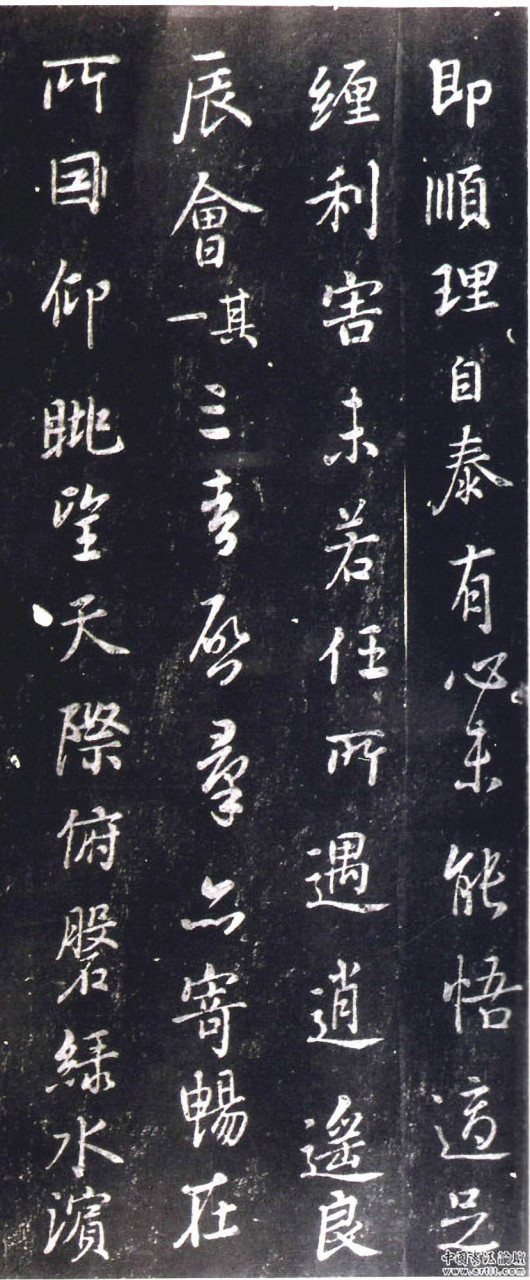 即順理自泰有心未能悟適足
纏利害未若任所遇逍遙良
辰會其一三春啓羣品寄暢在
所因仰眺望天際俯磐綠水濱
中国书法论坛
www.artit.com